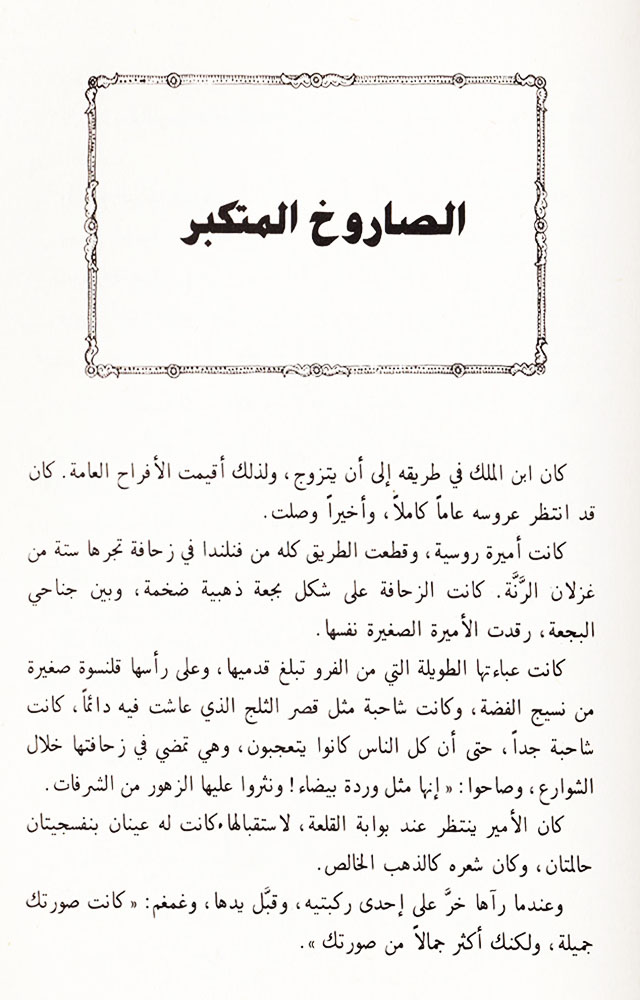 الصاروخ المتكبر
كان ابن الملك في طريقه إلى أن يتزوج، ولذلك أقيمت الأفراح العامة. كان
قد انتظر عروسه عاماً كاملاً، وأخيراً وصلت.
كانت أميرة روسية، وقطعت الطريق كله من فنلندا في زحافة تجرها ستة من
غزلان الرَّنَّة. كانت الزحافة على شكل بجعة ذهبية ضخمة، وبين جناحي
البجعة، رقدت الأميرة الصغيرة نفسها.
كانت عباءتها الطويلة التي من الفرو تبلغ قدميها، وعلى رأسها قلنسوة صغيرة
من نسيج الفضة، وكانت شاحبة مثل قصر الثلج الذي عاشت فيه دائماً، كانت
شاحبة جداً، حتى أن كل الناس كانوا يتعجبون، وهي تمضي في زحافتها خلال
الشوارع، وصاحوا: « إنها مثل وردة بيضاء! ونثروا عليها الزهور من الشرفات.
كان الأمير ينتظر عند بوابة القلعة، لاستقبالها، كانت له عينان بنفسجيتان
حالمتان، وكان شعره كالذهب الخالص.
وعندما رآها خرَّ على إحدى ركبتيه، وقبَّل يدها، وغمغم: « كانت صورتك
جميلة، ولكنك أكثر جمالاً من صورتك ».